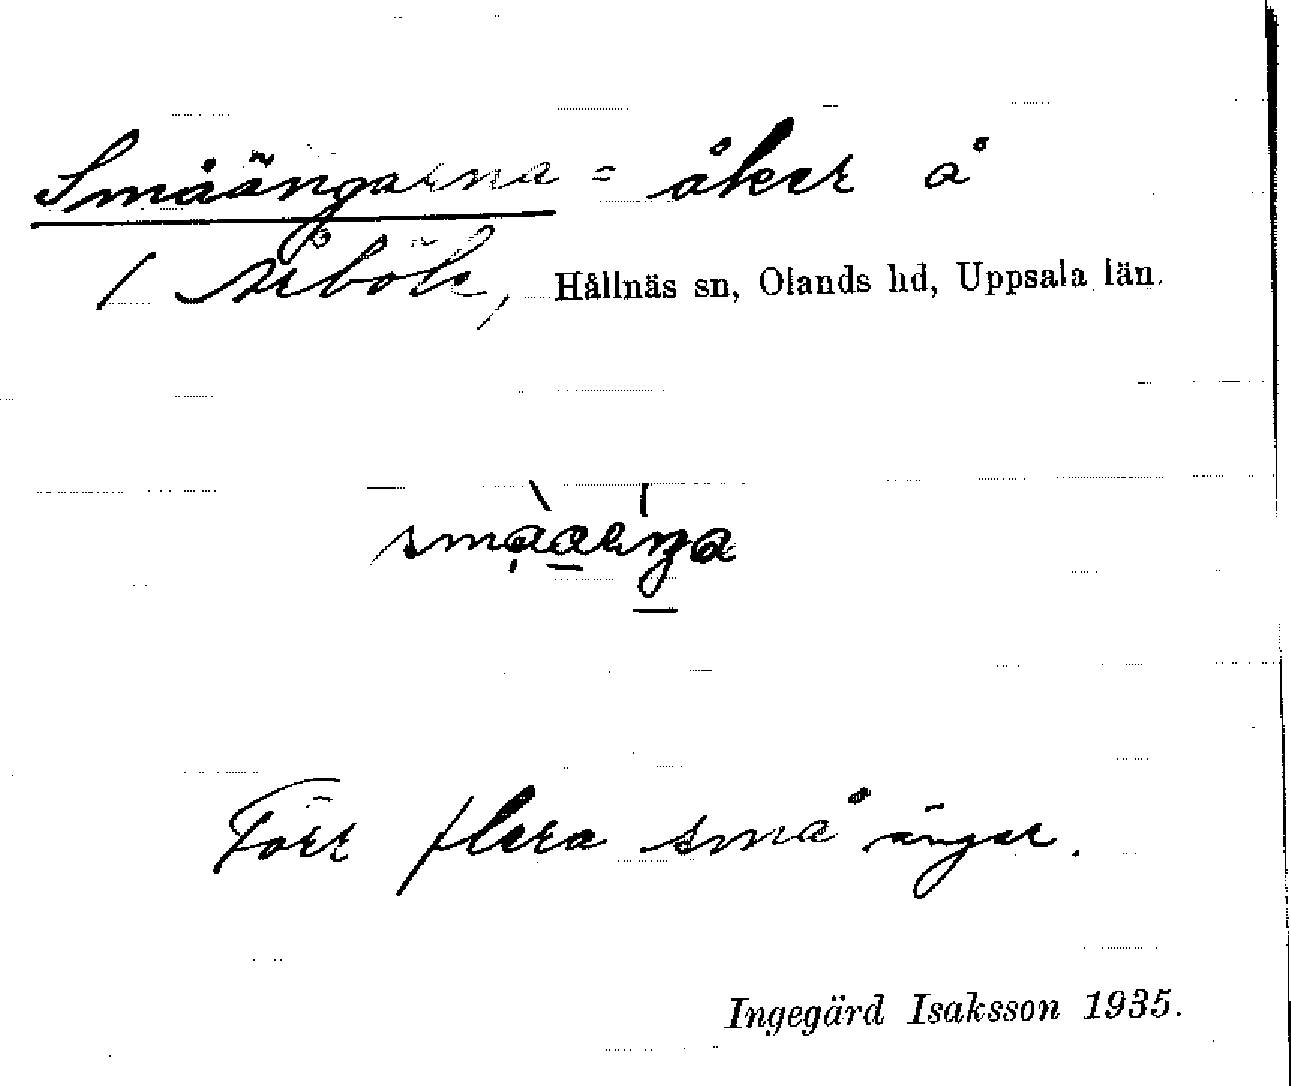 Småängarna = åker å
1 Årböle, Hållnäs sn, Olands hd, Uppsala län.
Förr flera små ängar.
Ingegärd Isaksson 1935.